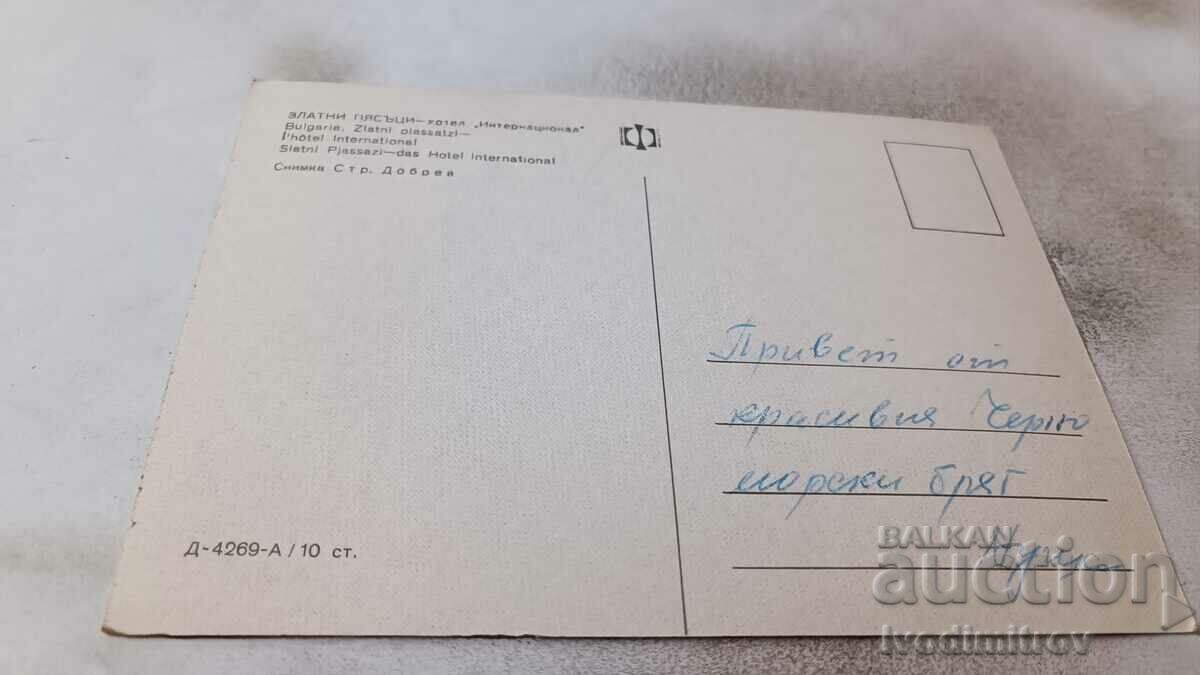 ЗЛАТНИ ПЯСЪЦИ—хотел „Интернационал"
Bulgaria. Zlatni piassatzi—
l'hôtel International
Slatni Pjassazi—das Hotel International
Снимка Стр. Добрев
Д-4269-А / 10 ст.
Привет от
красивия Черно
морски бряг
BALKAN
auction
ivodimitrov